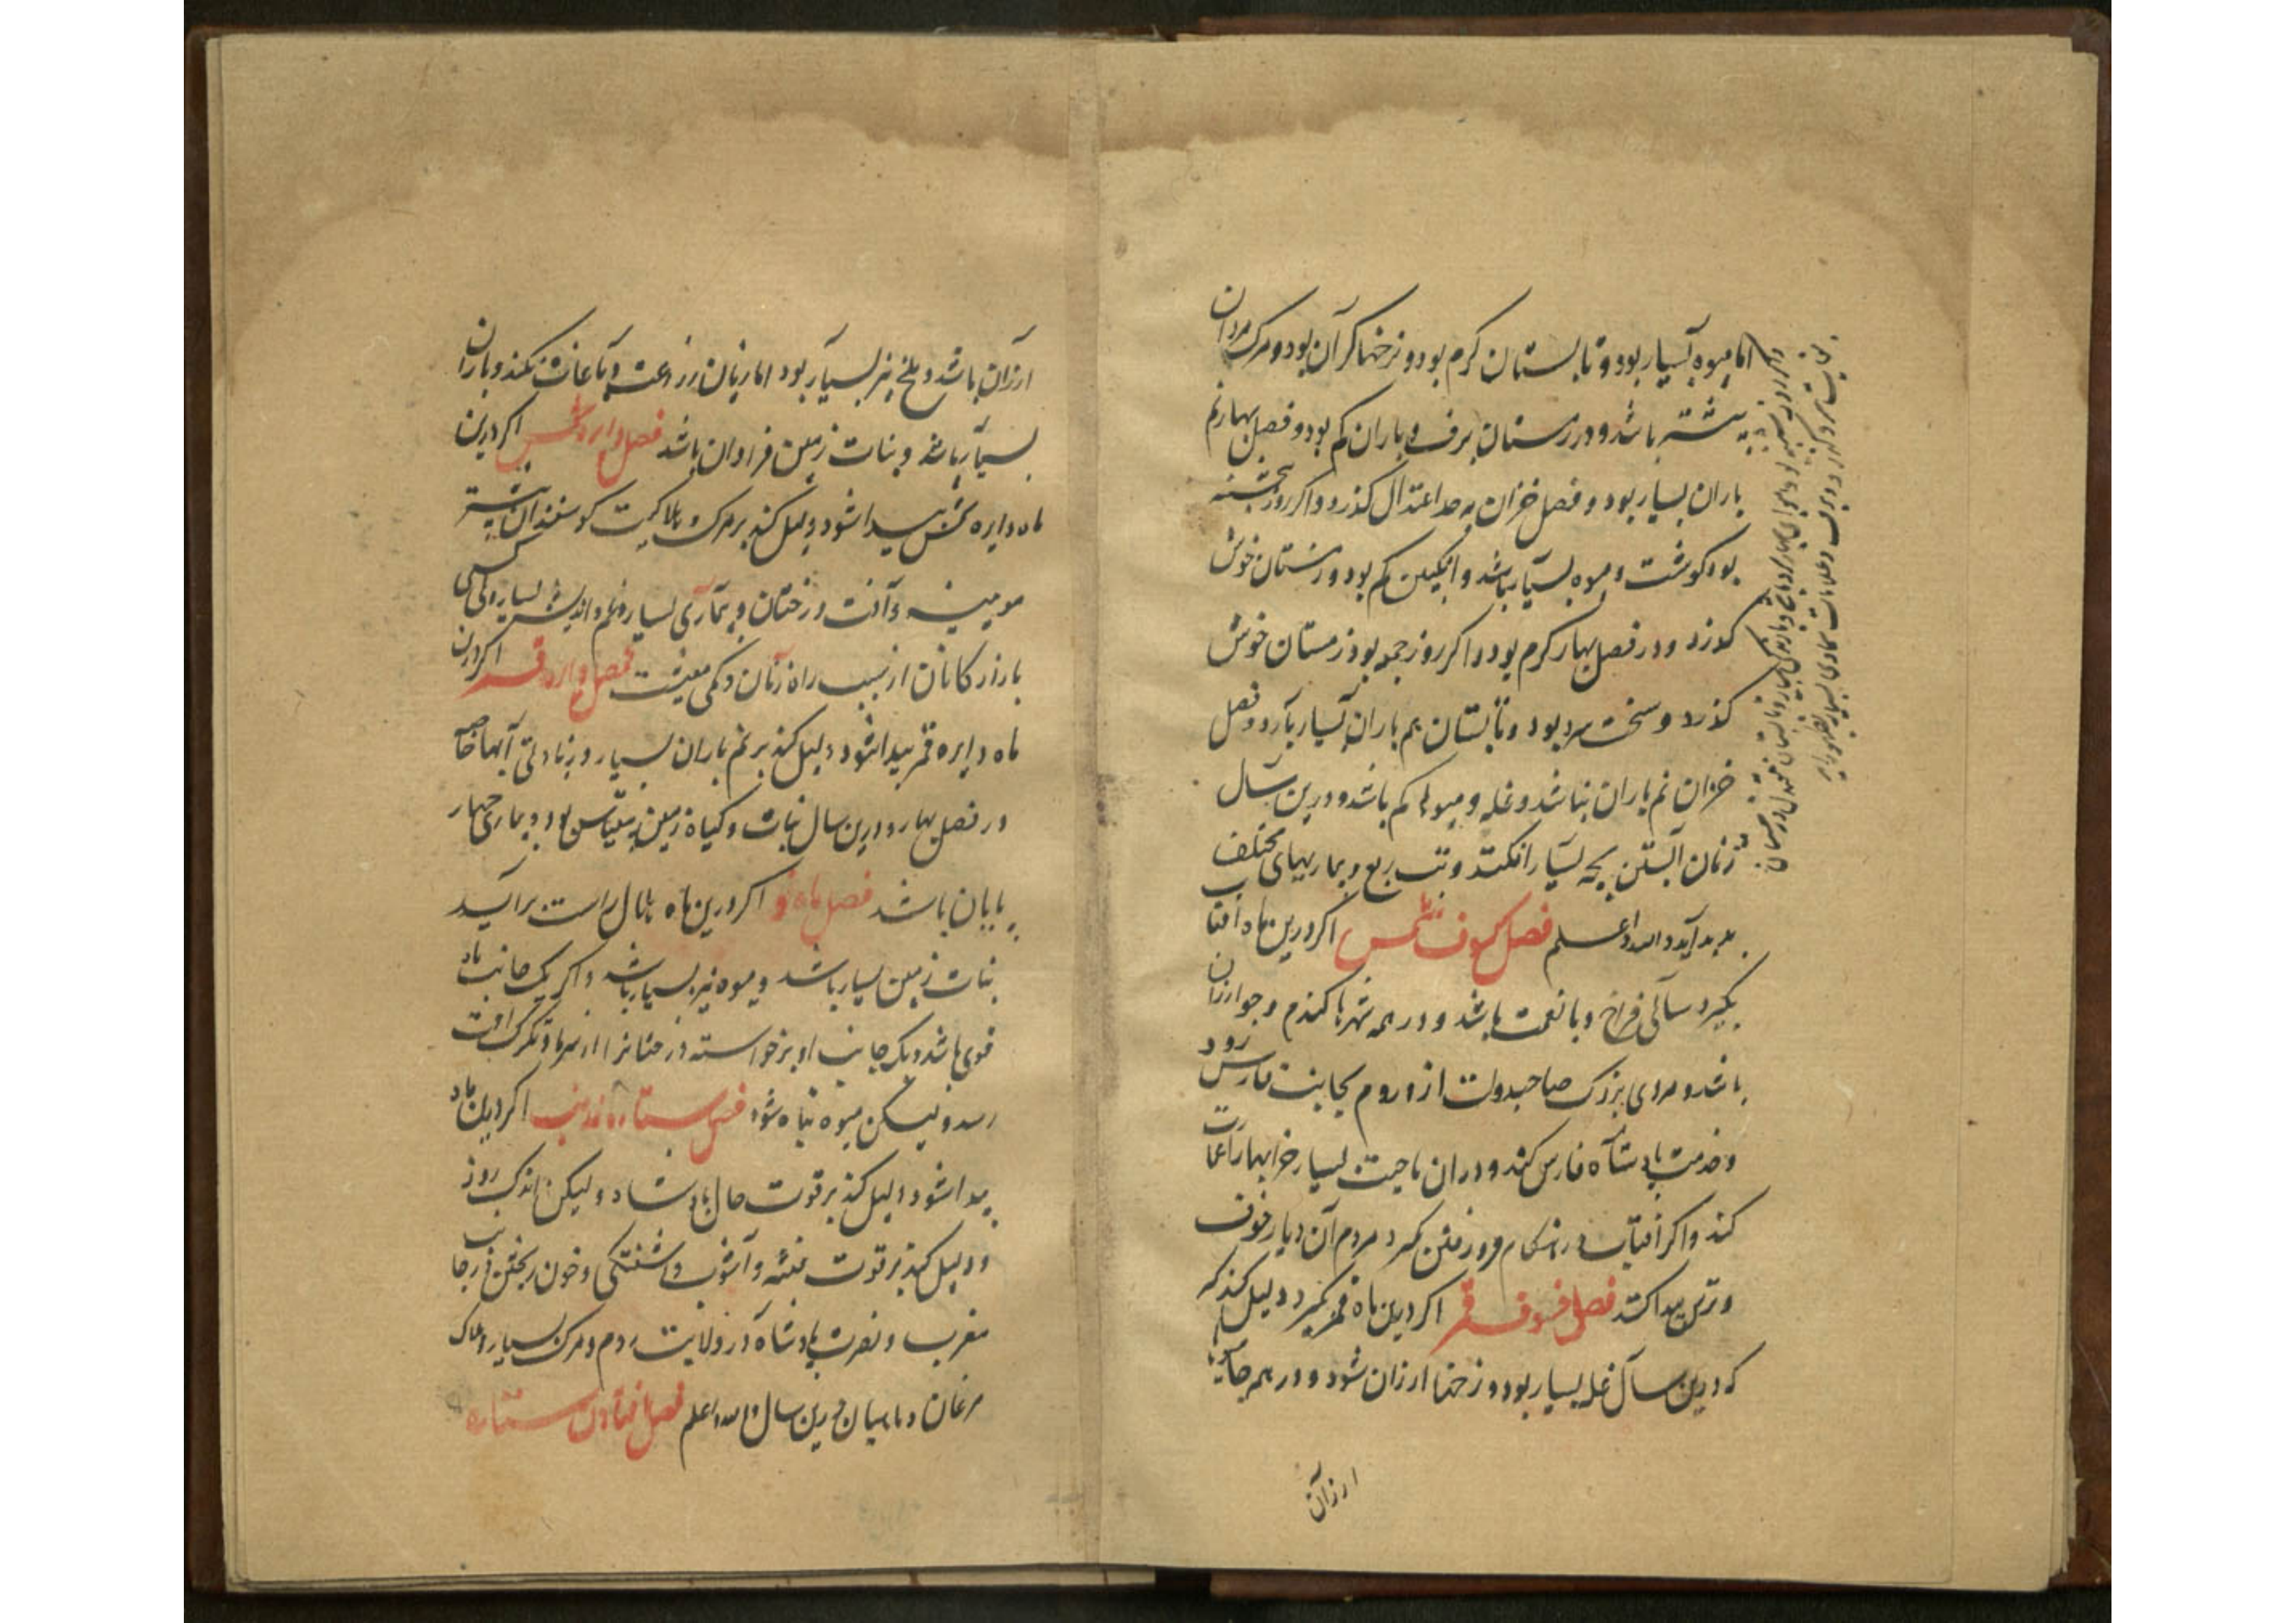 اما میوه بسیار بود و تابستان کرم بود و نرخها کران بود و مرک مردان
بیشتر باشد و در زمستان برف و باران کم بود و فصل بهار نم
باران بسیار بود و فصل خزان بحد اعتدال کذرد و اکر روز پنجشنبه
بود کوشت و میوه بسیار باشد و انکبین کم بود و زمستان خوش
کذرد و در فصل بهار کرم بود و اکر روز جمعه بود زمستان خوش
کذرد و سخت سرد بود و تابستان هم باران بسیار بارد و فصل
خزان نم باران نباشد و غله و میوه کم باشد و درین سال
زنان آبستن بچه بسیار افکنند و تب ربع و بیماریهای مختلف
پدید آید والله اعلم فصل کسوف شمس اکر درین ماه افتاب
بکیرد سالی فراخ و با نعمت باشد و در همه شهرها کندم و جو ارزان
باشد و مردی بزرک صاحبدولت از روم بجانب فارس رود
و خدمت پادشاه فارس کند و دران ناحیت بسیار خرابیها را عمارت
کند و اکر افتاب در هنکام فرو رفتن کیرد مردم آن دیار خوف
و ترس پیدا کنند فصل خسوف قمر اکر درین ماه قمر کیرد دلیل کند که
که درین سال غله بسیار بود و نرخها ارزان شود و در همه جایها
ارزان
ارزان باشد و ملخ نیز بسیار بود اما زیان زراعت و باغات نکند و باران
بسیار باشد و نبات زمین فراوان باشد فصل دایره شمس اکر درین
ماه دایره شمس پیدا شود دلیل کند بر مرک و هلاکیت کوسفندان بیشتر
مومینه و آفت درختان و بیماری بسیار و غم و اندیشه بسیار و کسی
بازارکانان از سبب راه زنان و کمی معیشت فصل دایره قمر اکر درین
ماه دایره قمر پیدا شود دلیل کند بر نم باران بسیار و زیادتی آبها خاصه
در فصل بهار و درین سال نبات و کیاه زمین بیقیاس بود و بیماری چهار
پایان باشد فصل ماه نو اکر درین ماه هلال راست برآید
نبات زمین بسیار باشد و میوه نیز بسیار باشد و اکر یک جانب ماه
قوی باشد و یک جانب او برخواسته درختانرا از سرما و تکرک آفت
رسد و لیکن میوه تباه شود فصل ستاره ذو ذنب اکر درین ماه
پیدا شود دلیل کند بر قوت حال پادشاه و لیکن اندک روز
و دلیل کند بر قوت فتنه و آشوب و آشفتکی و خون ریختن در جانب
مغرب و نصرت پادشاه در ولایت روم و مرک بسیار و هلاک
مرغان و ماهیان درین سال والله اعلم فصل افتادن ستاره